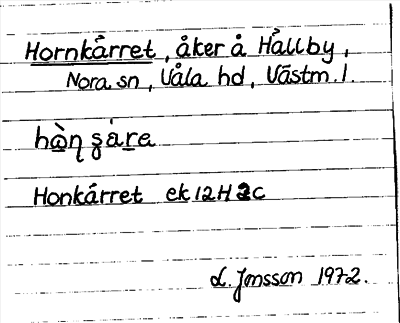 Hornkårret, åker å Hållby,
Nora sn, Våla hd, Västm. l.
hàn̥ ʂàrа
Honkärret ek 12H 2c
L. Jonsson 1972.